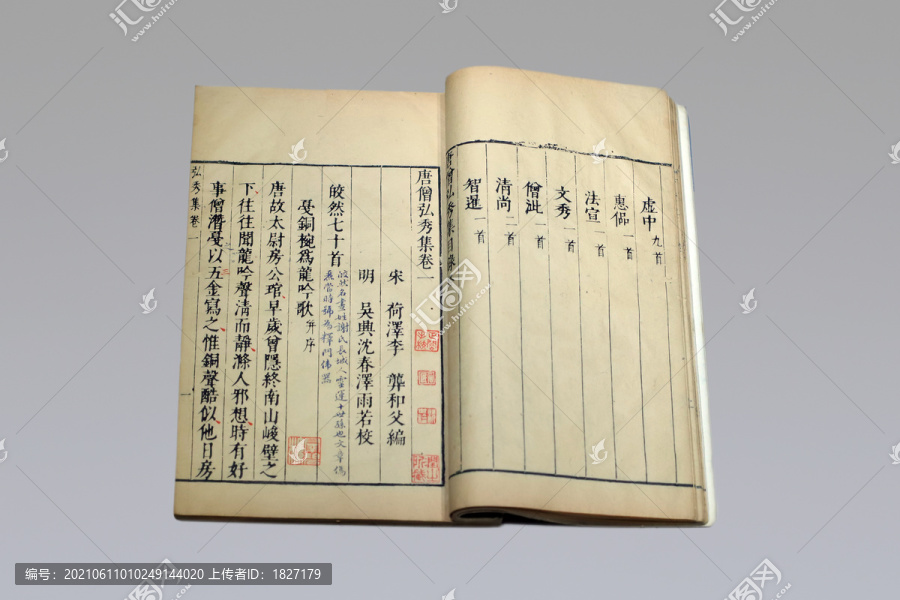 虛中 九首
惠偘 一首
法宣 一首
文秀 一首
僧泚 一首
清尚 二首
智暹 一首
唐僧弘秀集目錄
唐僧弘秀集卷一
宋 荷澤李 龏和父編
明 吳興沈春澤雨若校
皎然七十首
皎然名晝姓謝氏長城人靈運十世孫也文章儁
麗當時號為釋門偉器
戞銅椀爲龍吟歌 并序
唐故太尉房公琯早歲曾隱終南山峻壁之
下往往聞龍吟聲清而靜滌人邪想時有好
事僧潛戞以五金寫之惟銅聲酷似他日房
弘秀集卷一
一
汇图网
www.huitu.com
编号：20210611010249144020 上传者ID：1827179